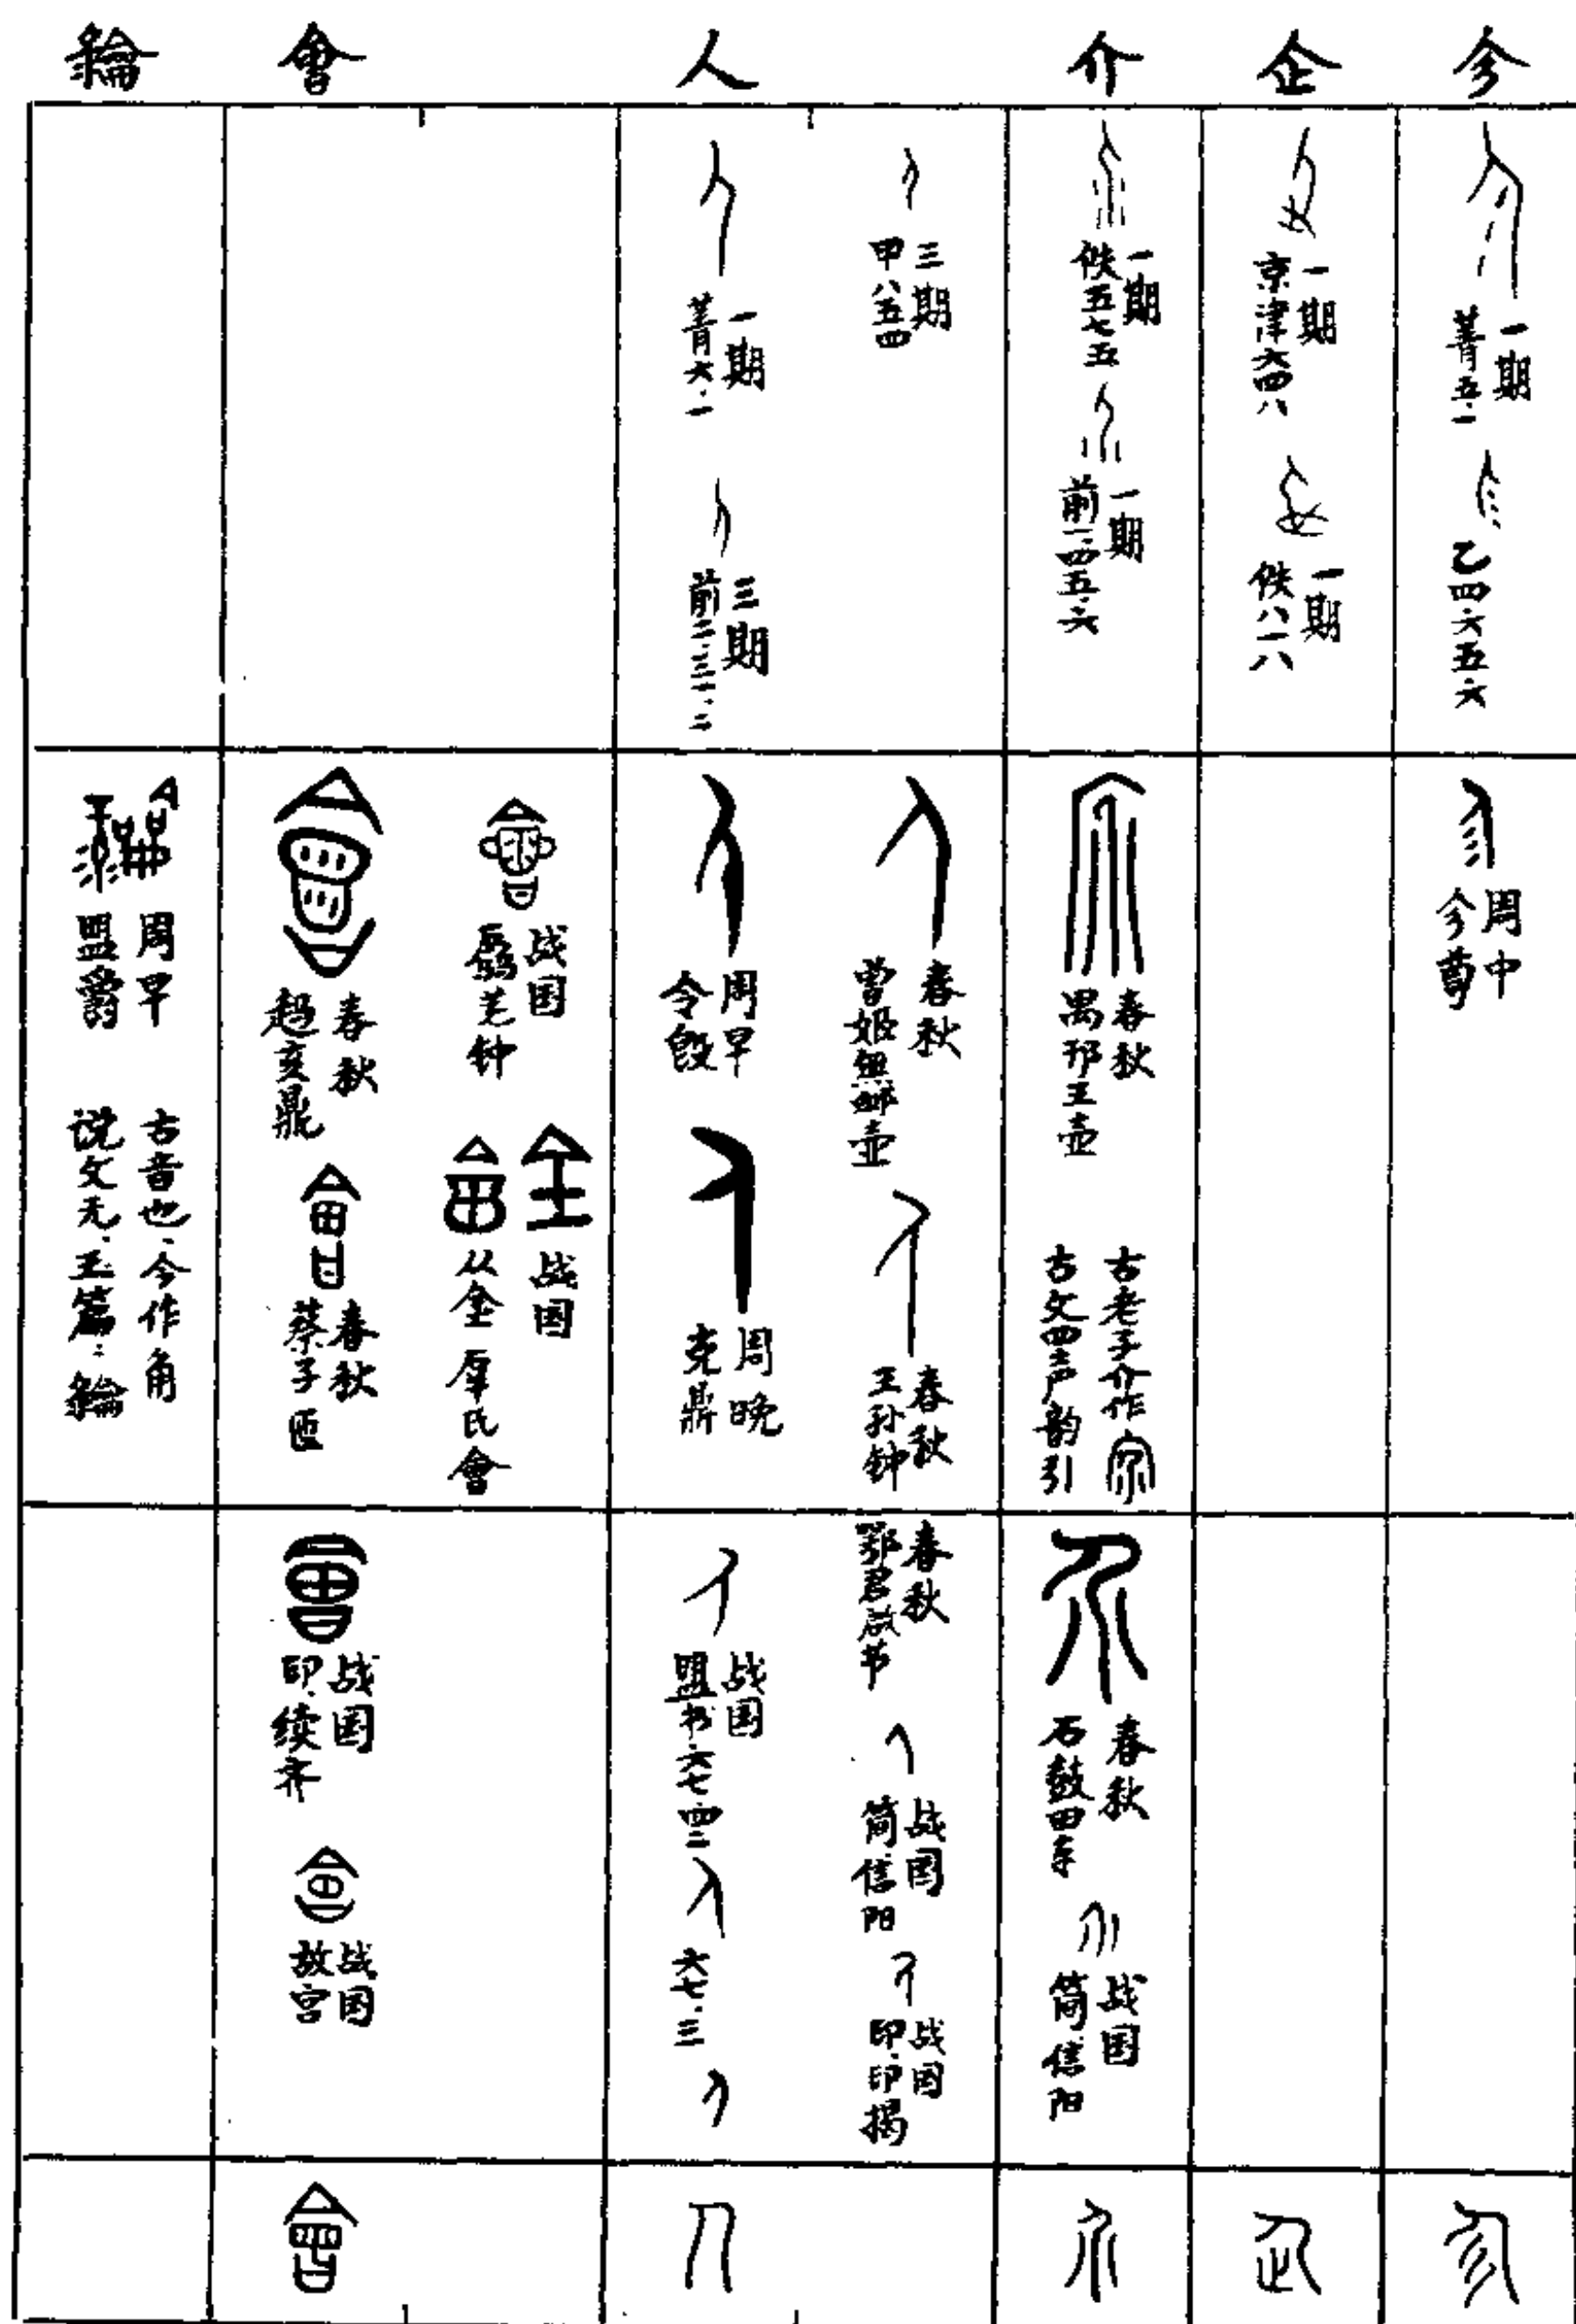 㐱 企 介 人 會
一期
菁五·一
乙四六五六
一期
京津六四八
一期
佚八一八
一期
佚五七五
一期
前一·四五·六
三期
甲八五四
一期
菁六·一
三期
前二·三一·二
周中
㐱尊
春秋
禺邗王壶
古老子介作
古文四声韵引
春秋
曾姬無卹壶
春秋
王孙钟
周早
令𣪘
周晚
克鼎
战国
羌钟
战国
从金 㕒氏會
春秋
趞亥鼎
春秋
蔡子匜
周早
盟爵
古音也·今作角
说文无·玉篇·
春秋
石鼓田车
战国
简·信阳
春秋
鄂君启节
战国
简·信阳
战国
印·印揭
战国
盟书六七·四二
六七·三
战国
印·续齐
战国
故宫